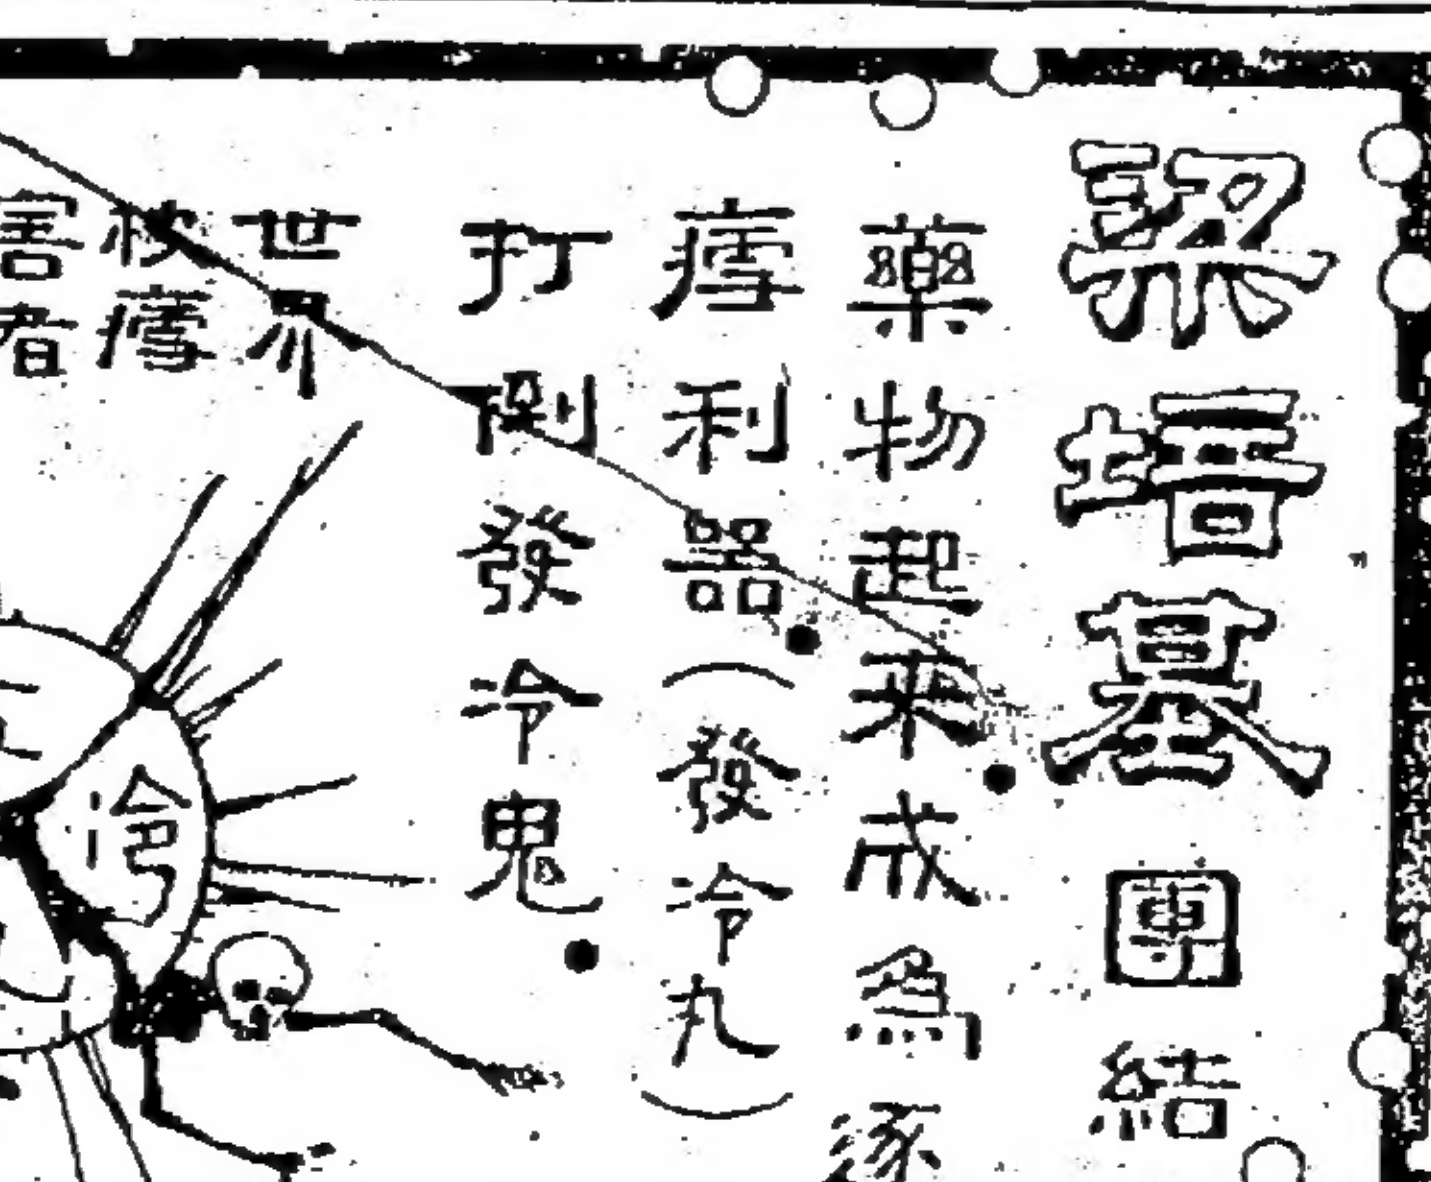 梁培墓團結
藥物起來成為逐
瘧利器（發冷丸）
打倒發冷鬼
世界
被瘧
害者
冷